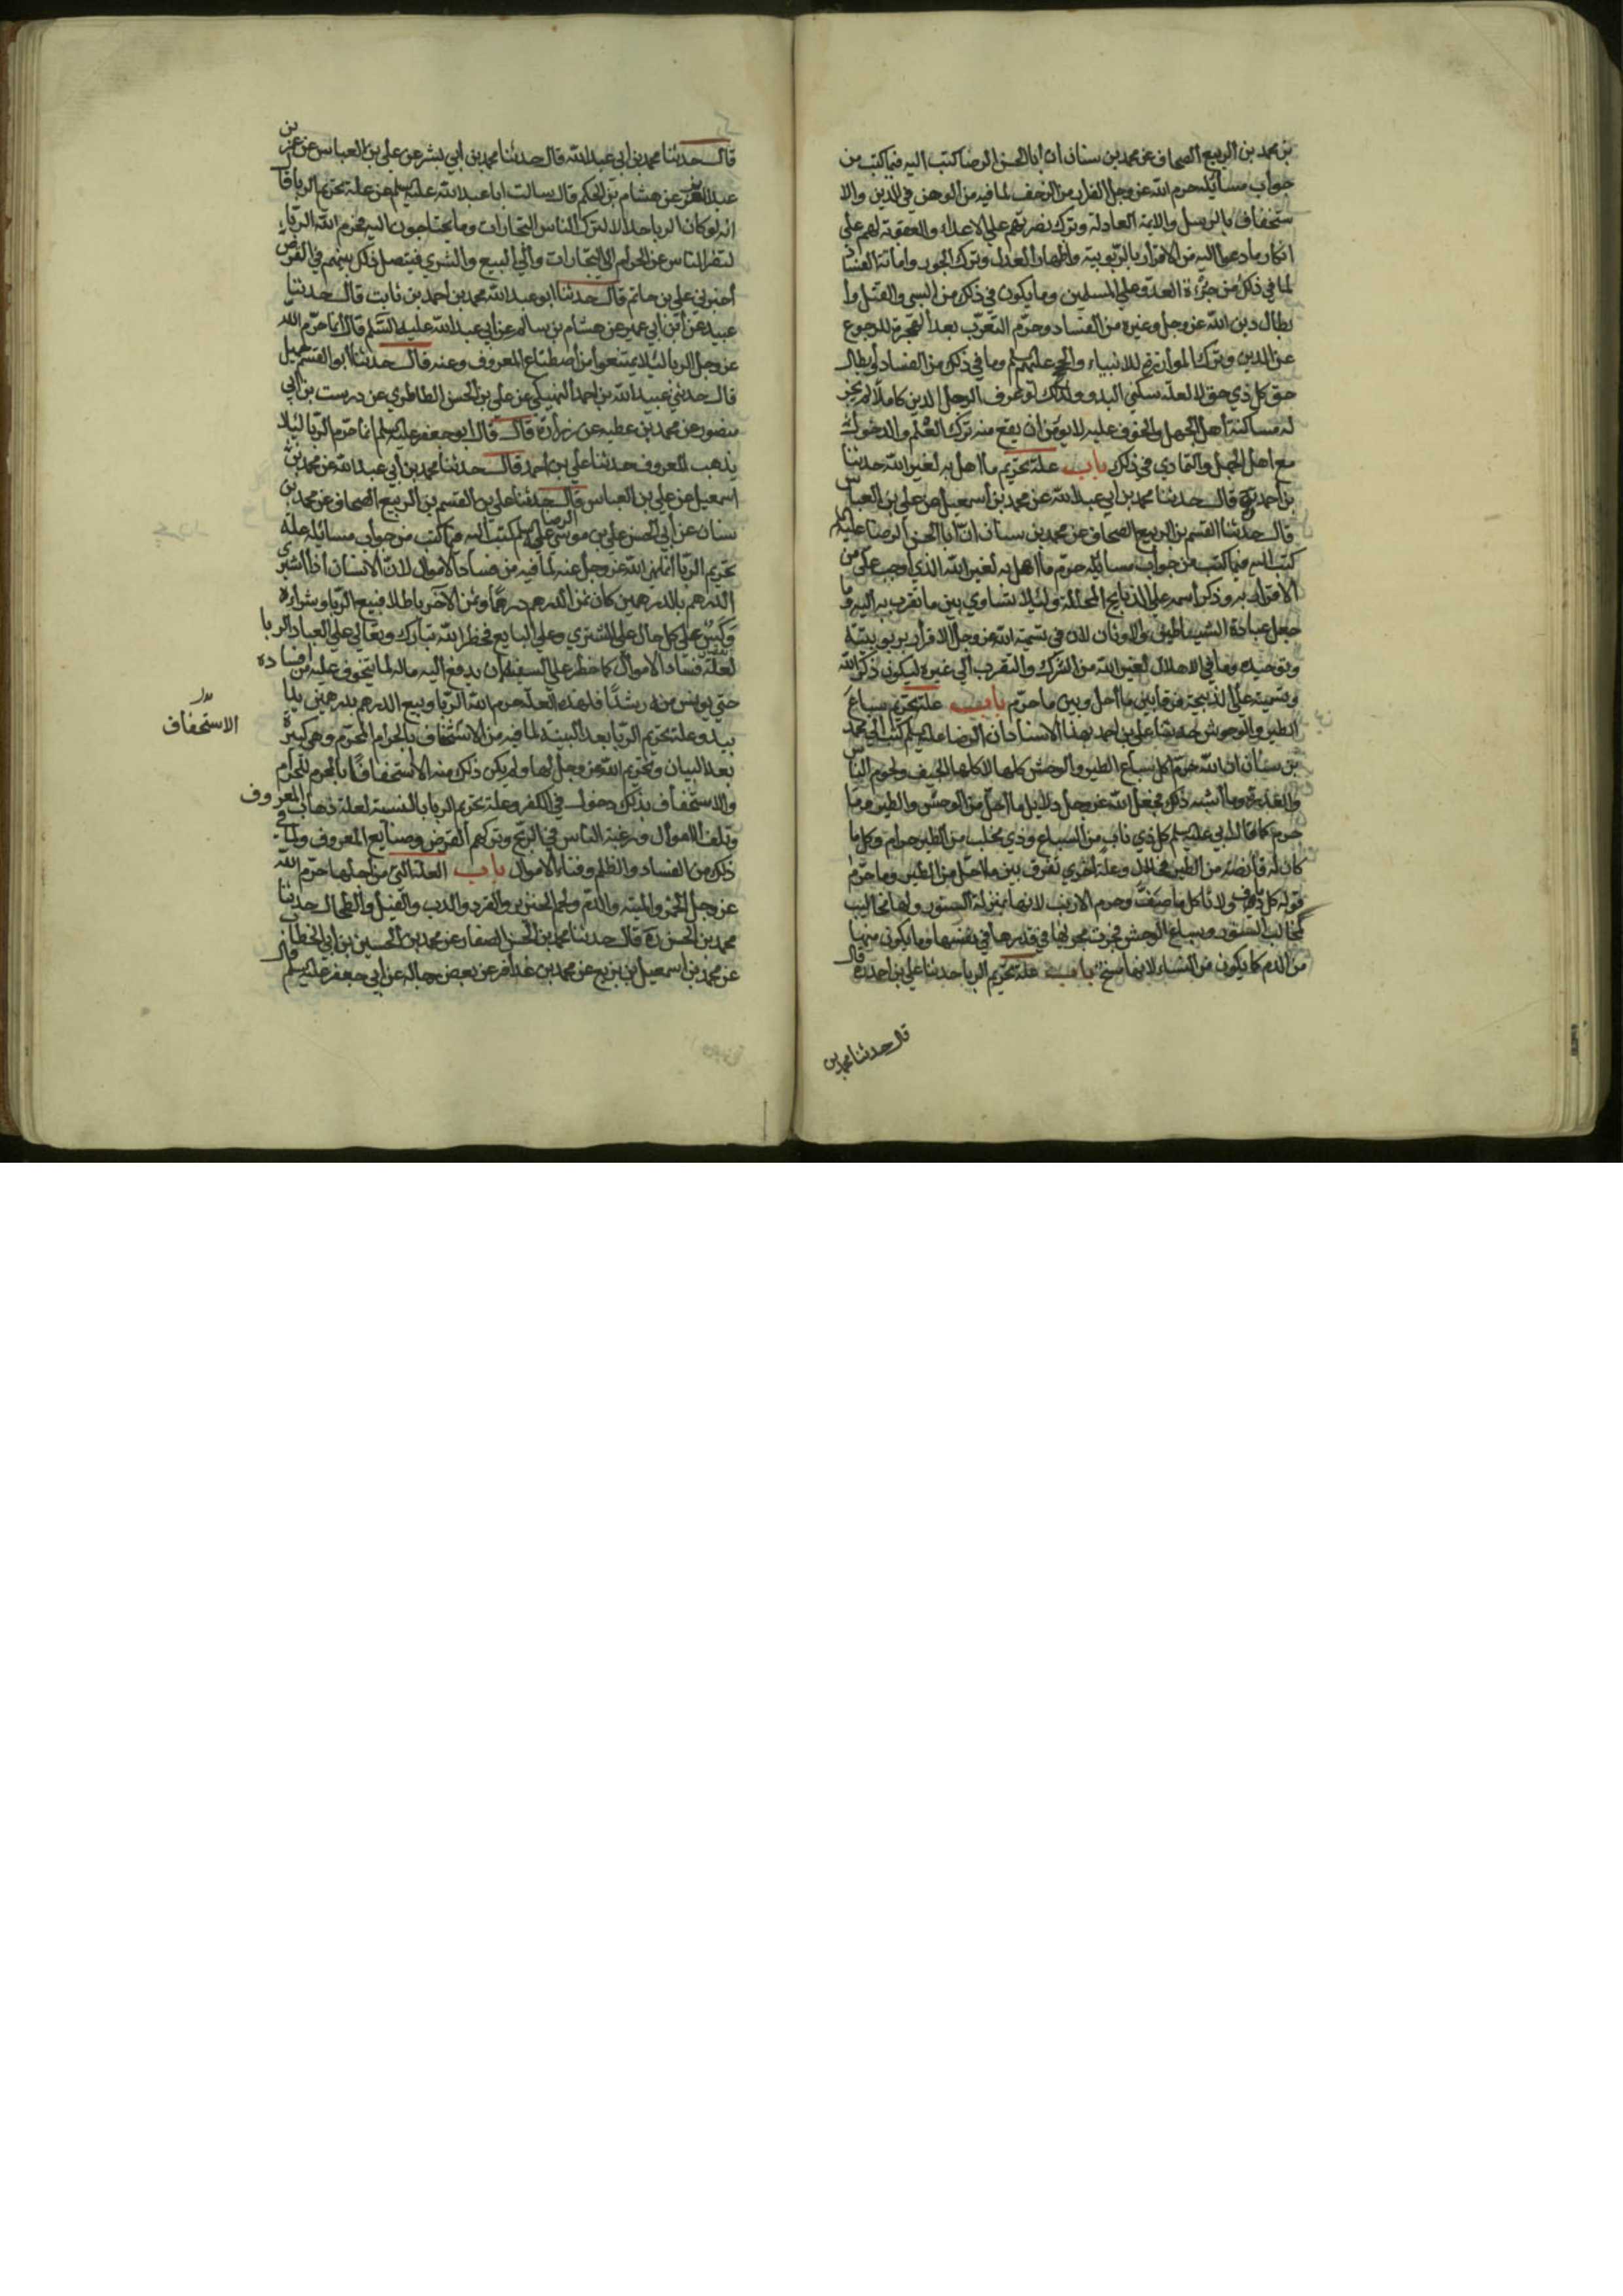 بن محمد بن الربيع الصحاف عن محمد بن سنان ان ابا الحسن الرضا كتب اليه فيما كتب من
جواب مسائله حرم الله عز وجل الفرار من الزحف لما فيه من الوهن في الدين والا
ستخفاف بالرسل والايمة العادلة وترك نصرتهم على الاعداء والعقوبة لهم على
انكار ما دعوا اليه من الاقرار بالربوبية واظهار العدل وترك الجور واماتة الفساد
لما في ذلك من جرءة العدو على المسلمين وما يكون في ذلك من السبي والقتل وا
بطال دين الله عز وجل وغيره من الفساد وحرم التعرب بعد الهجرة للرجوع
عن الدين وترك الموازرة للانبياء والحجج عليهم وما في ذلك من الفساد وابطال
حق كل ذي حق لا لعلة سكنى البدو ولذلك لو عرف الرجل الدين كاملا لم يجز
له مساكنة اهل الجهل والخوف عليه لا يؤمن ان يقع منه ترك العلم والدخول
مع اهل الجهل والتمادي في ذلك باب علة تحريم ما اهل به لغير الله حدثنا
بن احمد قال حدثنا محمد بن ابي عبد الله عن محمد بن اسمعيل عن علي بن العباس
قال حدثنا القسم بن الربيع الصحاف عن محمد بن سنان ان ابا الحسن الرضا عليلم
كتب اليه فيما كتب من جواب مسائله حرم ما اهل به لغير الله الذي اوجب على من
الاقرار به وذكر اسمه على الذبايح المحللة ولئلا يتساوي بين ما تقرب به اليه وما
جعل عبادة الشياطين والاوثان لان في تسمية الله عز وجل الاقرار بربوبيته
وتوحيده وما في الاهلال لغير الله من الشرك والتقرب الى غيره ليكون ذكر الله
وتسميته على الذبيحة فرقا بين ما احل وبين ما حرم باب علة تحريم سباع
الطير والوحوش حدثنا علي بن احمد بهذا الاسناد ان الرضا عليلم كتب الى محمد
بن سنان ان الله حرم كل سباع الطير والوحش كلها لاكلها الجيف ولحوم الناس
والعذرة وما اشبه ذلك فجعل الله عز وجل دلايل ما احل من الوحش والطير وما
حرم كما قال ابي عليلم كل ذي ناب من السباع وذي مخلب من الطير حرام وكل ما
كان له قانصة من الطير فحلال وعلة اخرى تفرق بين ما احل من الطير وما حرم
قوله كل ما دف ولا تاكل ما صف وحرم الارنب لانها بمنزلة السنور ولها مخاليب
كمخالب السنور وسباع الوحش فجرت مجراها في قذرها في نفسها وما يكون منها
من الدم كما يكون من النساء لانها مسخ باب علة تحريم الربا حدثنا علي بن احمد ره قال
قال حدثنا محمد بن
قال حدثنا محمد بن ابي عبد الله قال حدثنا محمد بن ابي بشر عن علي بن العباس عن عمر بن
عبد العزيز عن هشام بن الحكم قال سالت ابا عبد الله عليلم عن علة تحريم الربا قال
انه لو كان الربا حلالا لترك الناس التجارات وما يحتاجون اليه فحرم الله الربا
لتفر الناس عن الحرام الى التجارات والى البيع والشرى فيتصل ذلك بينهم في القرض
اخبرني علي بن حاتم قال حدثنا ابو عبد الله محمد بن احمد بن ثابت قال حدثنا
عبيد عن ابن ابي عمير عن هشام بن سالم عن ابي عبد الله عليه السلم قال انما حرم الله
عز وجل الربا لئلا يمتنعوا من اصطناع المعروف وعنه قال حدثنا ابو القسم حميل
قال حدثني عبيد الله بن احمد النهيكي عن علي بن الحسن الطاطري عن درست بن ابي
منصور عن محمد بن عطيه عن زرارة قال قال ابو جعفر عليلم انما حرم الربا ليلا
يذهب المعروف حدثنا علي بن احمد قال حدثنا محمد بن ابي عبد الله عن محمد بن
اسمعيل عن علي بن العباس قال حدثنا علي بن القسم بن الربيع الصحاف عن محمد بن
سنان عن ابي الحسن علي بن موسى الرضا عليلم كتب اليه فيما كتب من جواب مسائله علة
تحريم الربا انما نهى الله عز وجل عنه لما فيه من فساد الاموال لان الانسان اذا اشترى
الدرهم بالدرهمين كان ثمن الدرهم درهما وثمن الاخر باطلا فبيع الربا وشراءه
وكس على كل حال على المشتري وعلى البايع فحظر الله تبارك وتعالى على العباد الربا
لعلة فساد الاموال كما حظر على السفيه ان يدفع اليه ماله لما يتخوف عليه من افساده
حتى يونس منه رشدا فلهذه العلة حرم الله الربا وبيع الدرهم بدرهمين يدا
بيد وعلة تحريم الربا بعد البينة لما فيه من الاستخفاف بالحرام المحرم وهي كبيرة
الاستخفاف
بعد البيان وتحريم الله عز وجل لها ولم يكن ذلك منه الا استخفافا بالمحرم للحرام
والاستخفاف بذلك دخول في الكفر وعلة تحريم الربا بالنسية لعلة ذهاب المعروف
وتلف الاموال ورغبة الناس في الربح وتركهم القرض وصنايع المعروف ولما في
ذلك من الفساد والظلم وفناء الاموال باب العلة التي من اجلها حرم الله
عز وجل الخمر والميتة والدم ولحم الخنزير والقرد والدب والفيل والطحال حدثنا
محمد بن الحسن ره قال حدثنا محمد بن الحسن الصفار عن محمد بن الحسين بن ابي الخطاب
عن محمد بن اسمعيل بن بزيع عن محمد بن عذافر عن بعض رجاله عن ابي جعفر عليلم قال